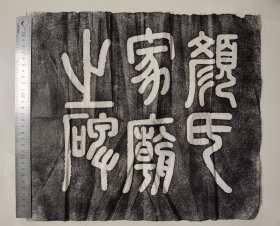 顏氏
家廟
之碑